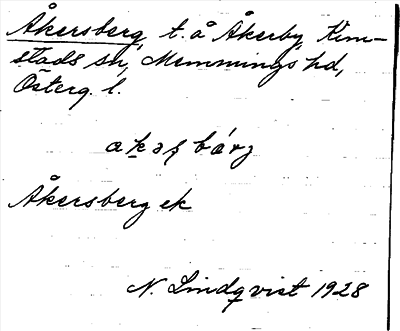 Åkersberg, t. å Åkerby, Kim-
stads sn, Memmings hd,
Österg. l.
Åkersberg ek
N. Lindqvist 1928